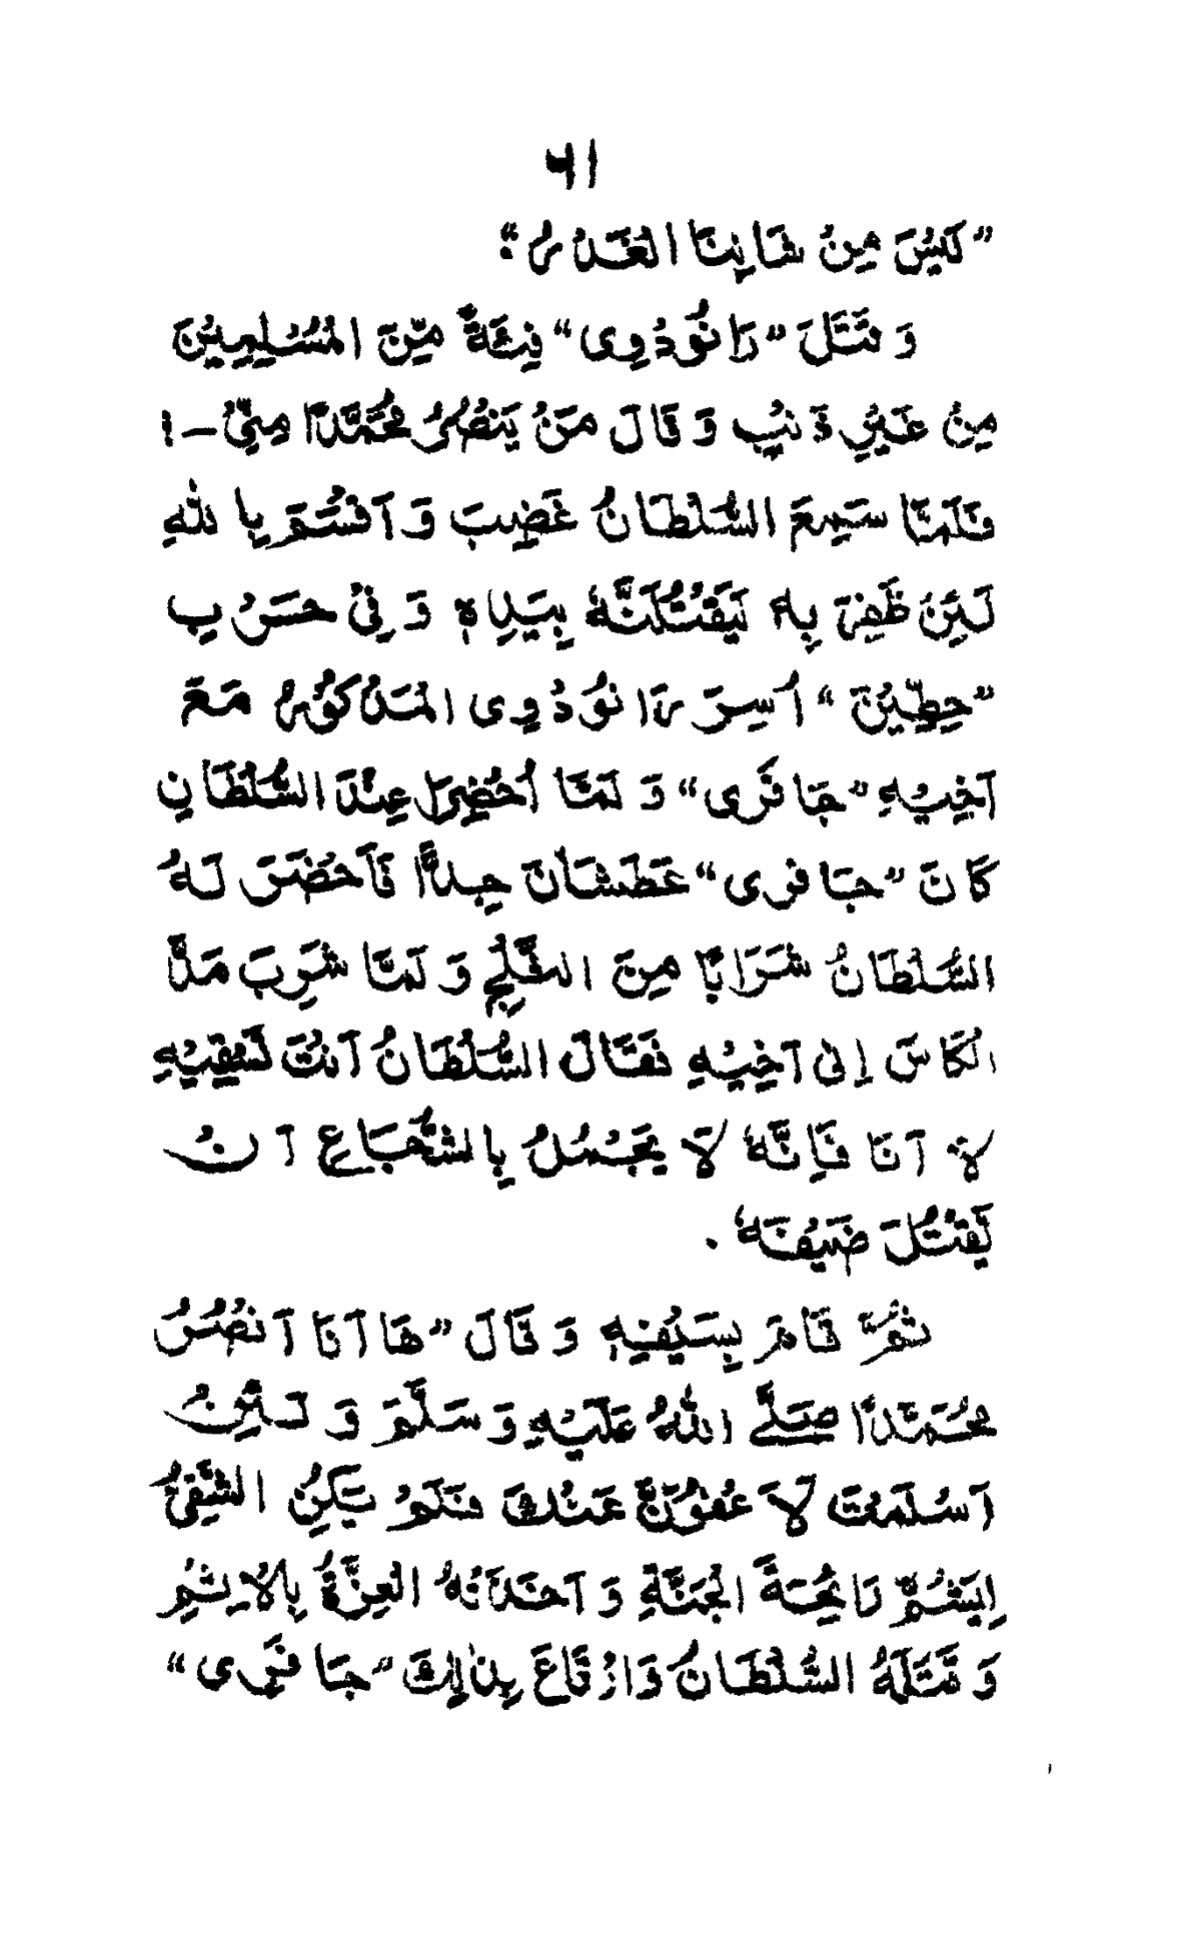 ۶۱
”لَيْسَ مِنْ شَانِنَا الْغَدْرُ“؛
وَقَتَلَ ”رَانُوْدُوِی“ فِئَةً مِّنَ الْمُسْلِمِيْنَ
مِنْ غَيْرِ ذَنْبٍ وَقَالَ مَنْ يَنْصُرُ مُحَمَّدًا مِنِّيْ—!
فَلَمَّا سَمِعَ السُّلْطَانُ غَضِبَ وَ اَقْسَمَ بِاللهِ
لَئِنْ ظَفِرَ بِهٖ لَيَقْتُلَنَّهٗ بِيَدِهٖ وَفِيْ حَرْبِ
”حِطِّيْنَ“ اُسِرَ رَانُوْدُوِی الْمَذْكُوْرُ مَعَ
اَخِيْهِ ”جَافَرٰی“ وَ لَمَّا اُحْضِرَا عِنْدَ السُّلْطَانِ
كَانَ ”جَافرٰی“ عَطْشَانَ جِدًّا فَاَحْضَرَ لَهُ
السُّلْطَانُ شَرَابًا مِنَ الثَّلْجِ وَ لَمَّا شَرِبَ مَدَّ
الْكَاسَ اِلٰى اَخِيْهِ فَقَالَ السُّلْطَانُ اَنْتَ تَسْقِيْهِ
لَا اَنَا فَاِنَّهٗ لَا يَجْمُلُ بِالشُّجَاعِ اَنْ
يَقْتُلَ ضَيْفَهٗ .
ثُمَّ قَامَ بِسَيْفِهٖ وَ قَالَ ”هَا اَنَا اَنْصُرُ
مُحَمَّدًا صَلَّے اللهُ عَلَيْهِ وَسَلَّمَ وَ لَئِنْ
اَسْلَمْتَ لَاَعْفُوَنَّ عَنْكَ فَلَمْ يَكُنِ الشَّقِيُّ
لِيَشُمَّ رَائِحَةَ الْجَنَّةِ وَ اَخَذَتْهُ الْعِزَّةُ بِالْاِثْمِ
وَ قَتَلَهُ السُّلْطَانُ وَ ارْتَاعَ بِذٰلِكَ ”جَافَرٰی“